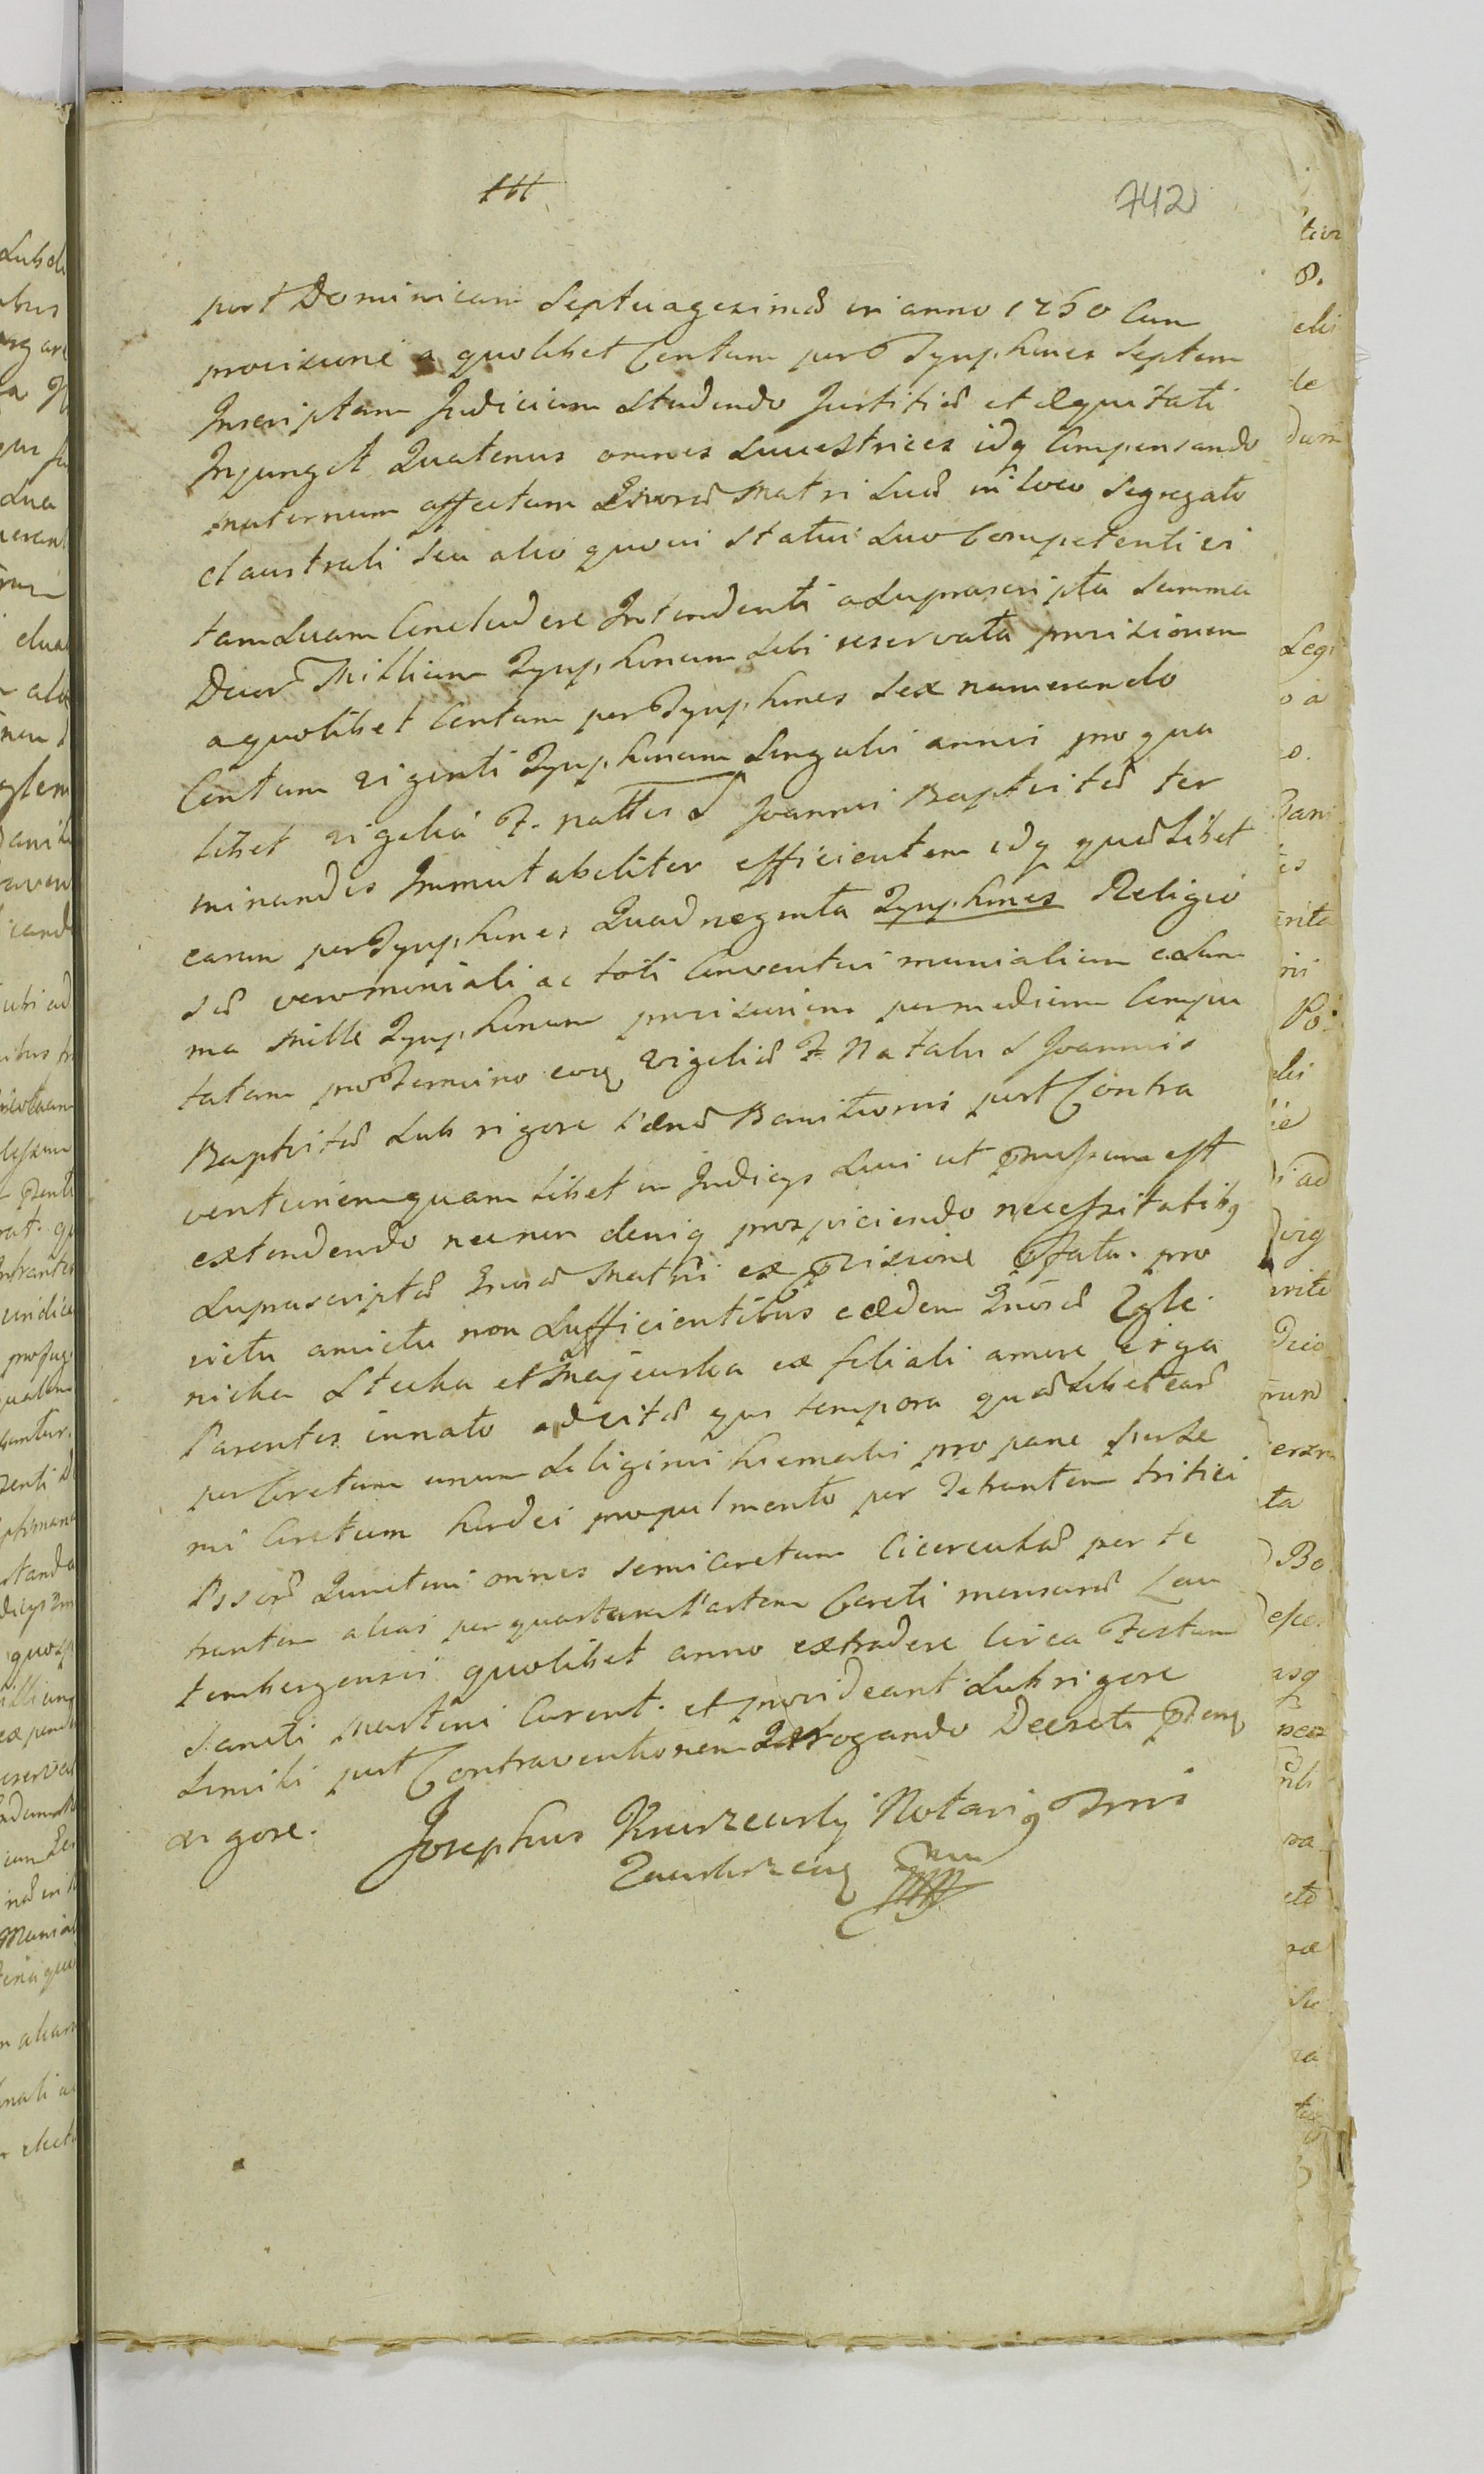 742
post Dominicam Septuagesimæ in anno 1760 Cum
provisione a quolibet Centum per Tynphones Septem
Inscriptam Judicium Studendo Justitiæ et Æquitati
Injungit Quatenus omnes Succestrices idq Compensando
maternum affectum Gnoræ Matri Suæ in loco Segregato
claustrali seu alio quovis Statui Suo Competenti vi
tam Suam Concludere Intendenti a Supra scripta Summa
Duor Millium Tynphonum Sibi reservata provisionem
a quolibet Centum per Tynphones Sex numerando
Centum viginti Tynphonum Singulis annis pro qua
libet vigilia F. nattis S Joannis Baptistæ ter
minandis Immutabiliter efficientem idq quælibet
earum per Tynphones Quadraginta Tynphones Religio
sæ vero moniali ac toti Conventui monialium e Sum
ma Mille Tynphonum provisionem per medium Compu
tatam pro Termino eoq vigiliæ F. Natalis S Joannis
Baptistæ Sub rigore Pænæ Banitionis post Contra
ventionem quamlibet in Judicys Suis ut præssum est
extendendo necnon deniq prospiciendo necessitatibq
Suprascriptæ Gnoræ Matris ex provisione præfata pro
victu amictu non Sufficientibus eædem Gnoræ Zgle
nicka Stecka et Majewska ex filiali amore erga
Parentes innato ad vitæ ejus tempora quælibet earum
per Coretum unum Siliginis hiemalis pro pane
mi Coretum hordei pro pulmento per Tetrantem tritici
Pisor Quinctini omnes semicoretum Cicerculæ per te
trantem alias per quartam Partem Coreti mensuræ Leo
tembergensis quolibet anno extradere Circa Festum
Sancti Martini Curent et provideant Sub rigore
Simili post Contraventionem Irrogando Decreti præsentis
vigore.
Josephus Notariq